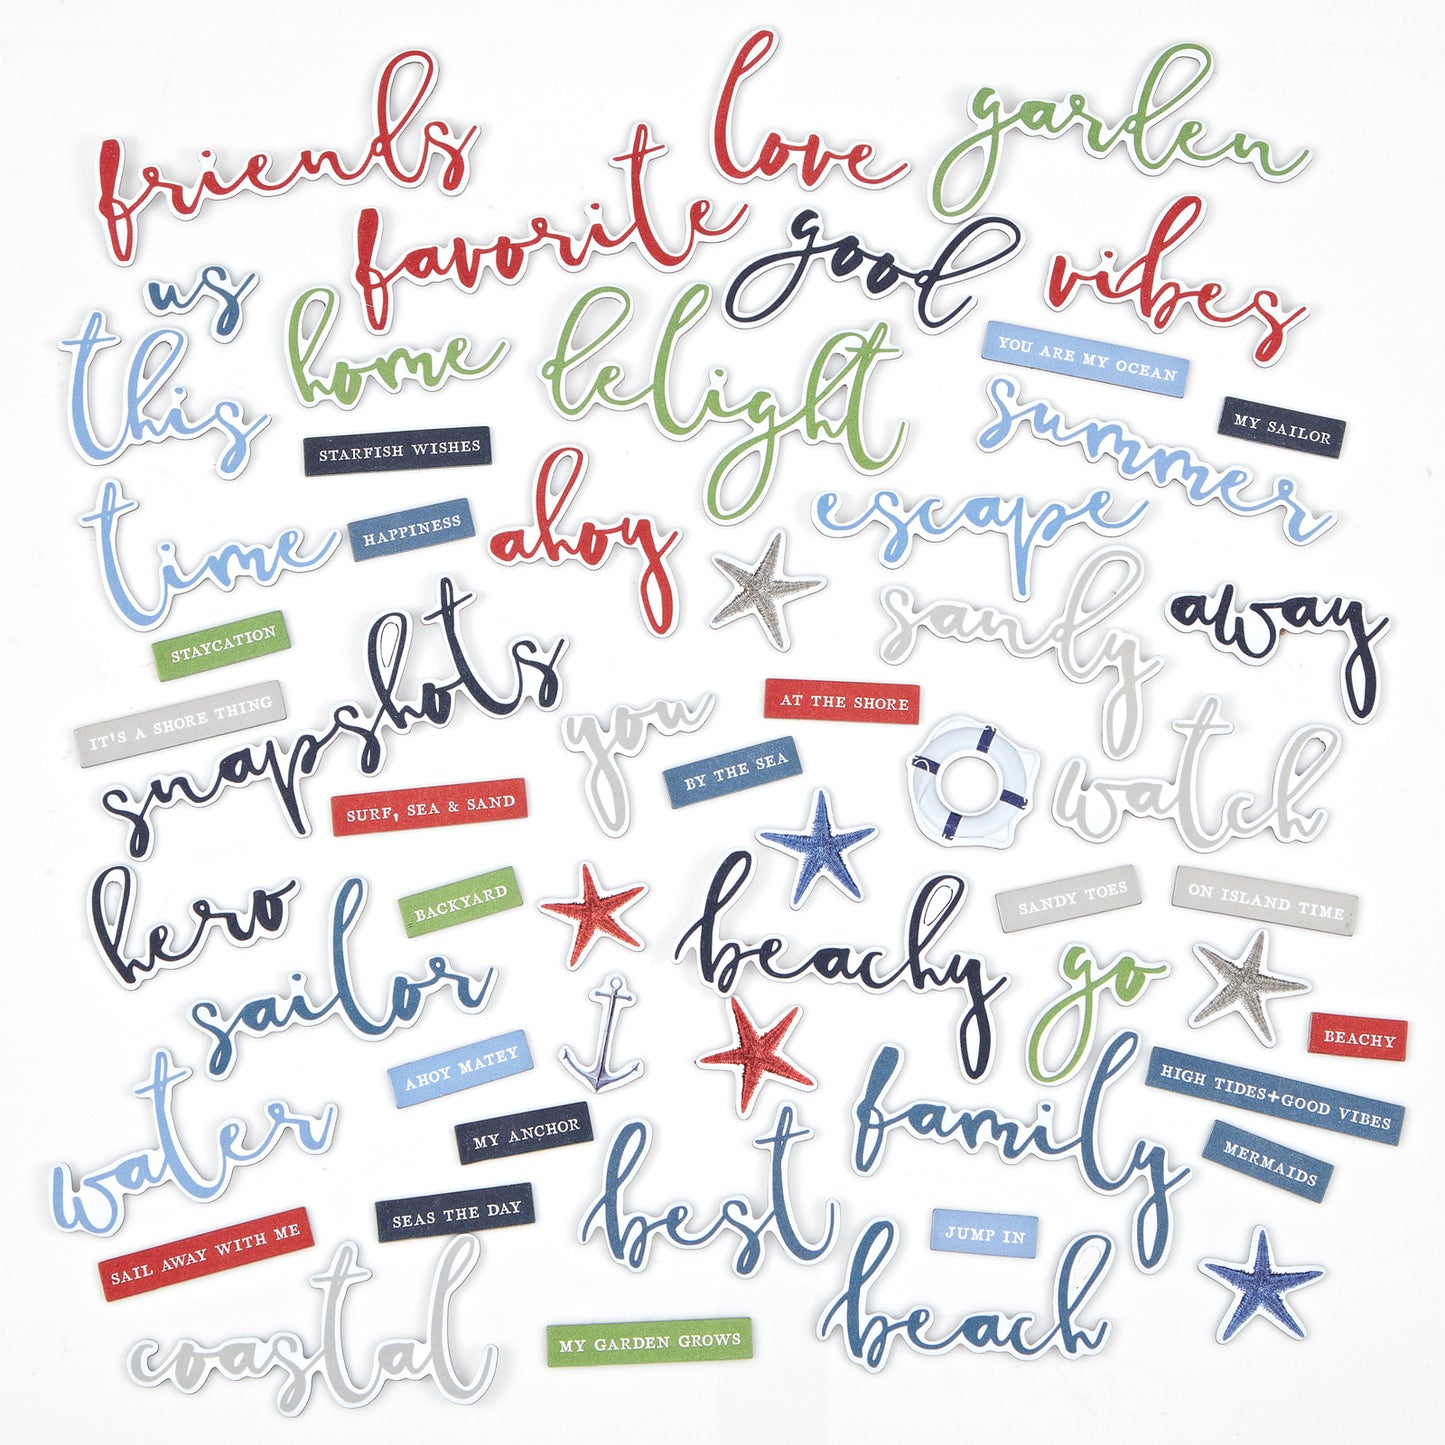 friends
love
garden
favorite
good
vibes
us
this
home
delight
YOU ARE MY OCEAN
summer
MY SAILOR
STARFISH WISHES
time
HAPPINESS
ahoy
escape
sandy
away
STAYCATION
IT'S A SHORE THING
snapshots
you
AT THE SHORE
BY THE SEA
watch
SURF, SEA & SAND
hero
BACKYARD
beachy
SANDY TOES
ON ISLAND TIME
sailor
go
BEACHY
water
AHOY MATEY
family
HIGH TIDES+GOOD VIBES
MY ANCHOR
best
MERMAIDS
SEAS THE DAY
SAIL AWAY WITH ME
JUMP IN
beach
coastal
MY GARDEN GROWS